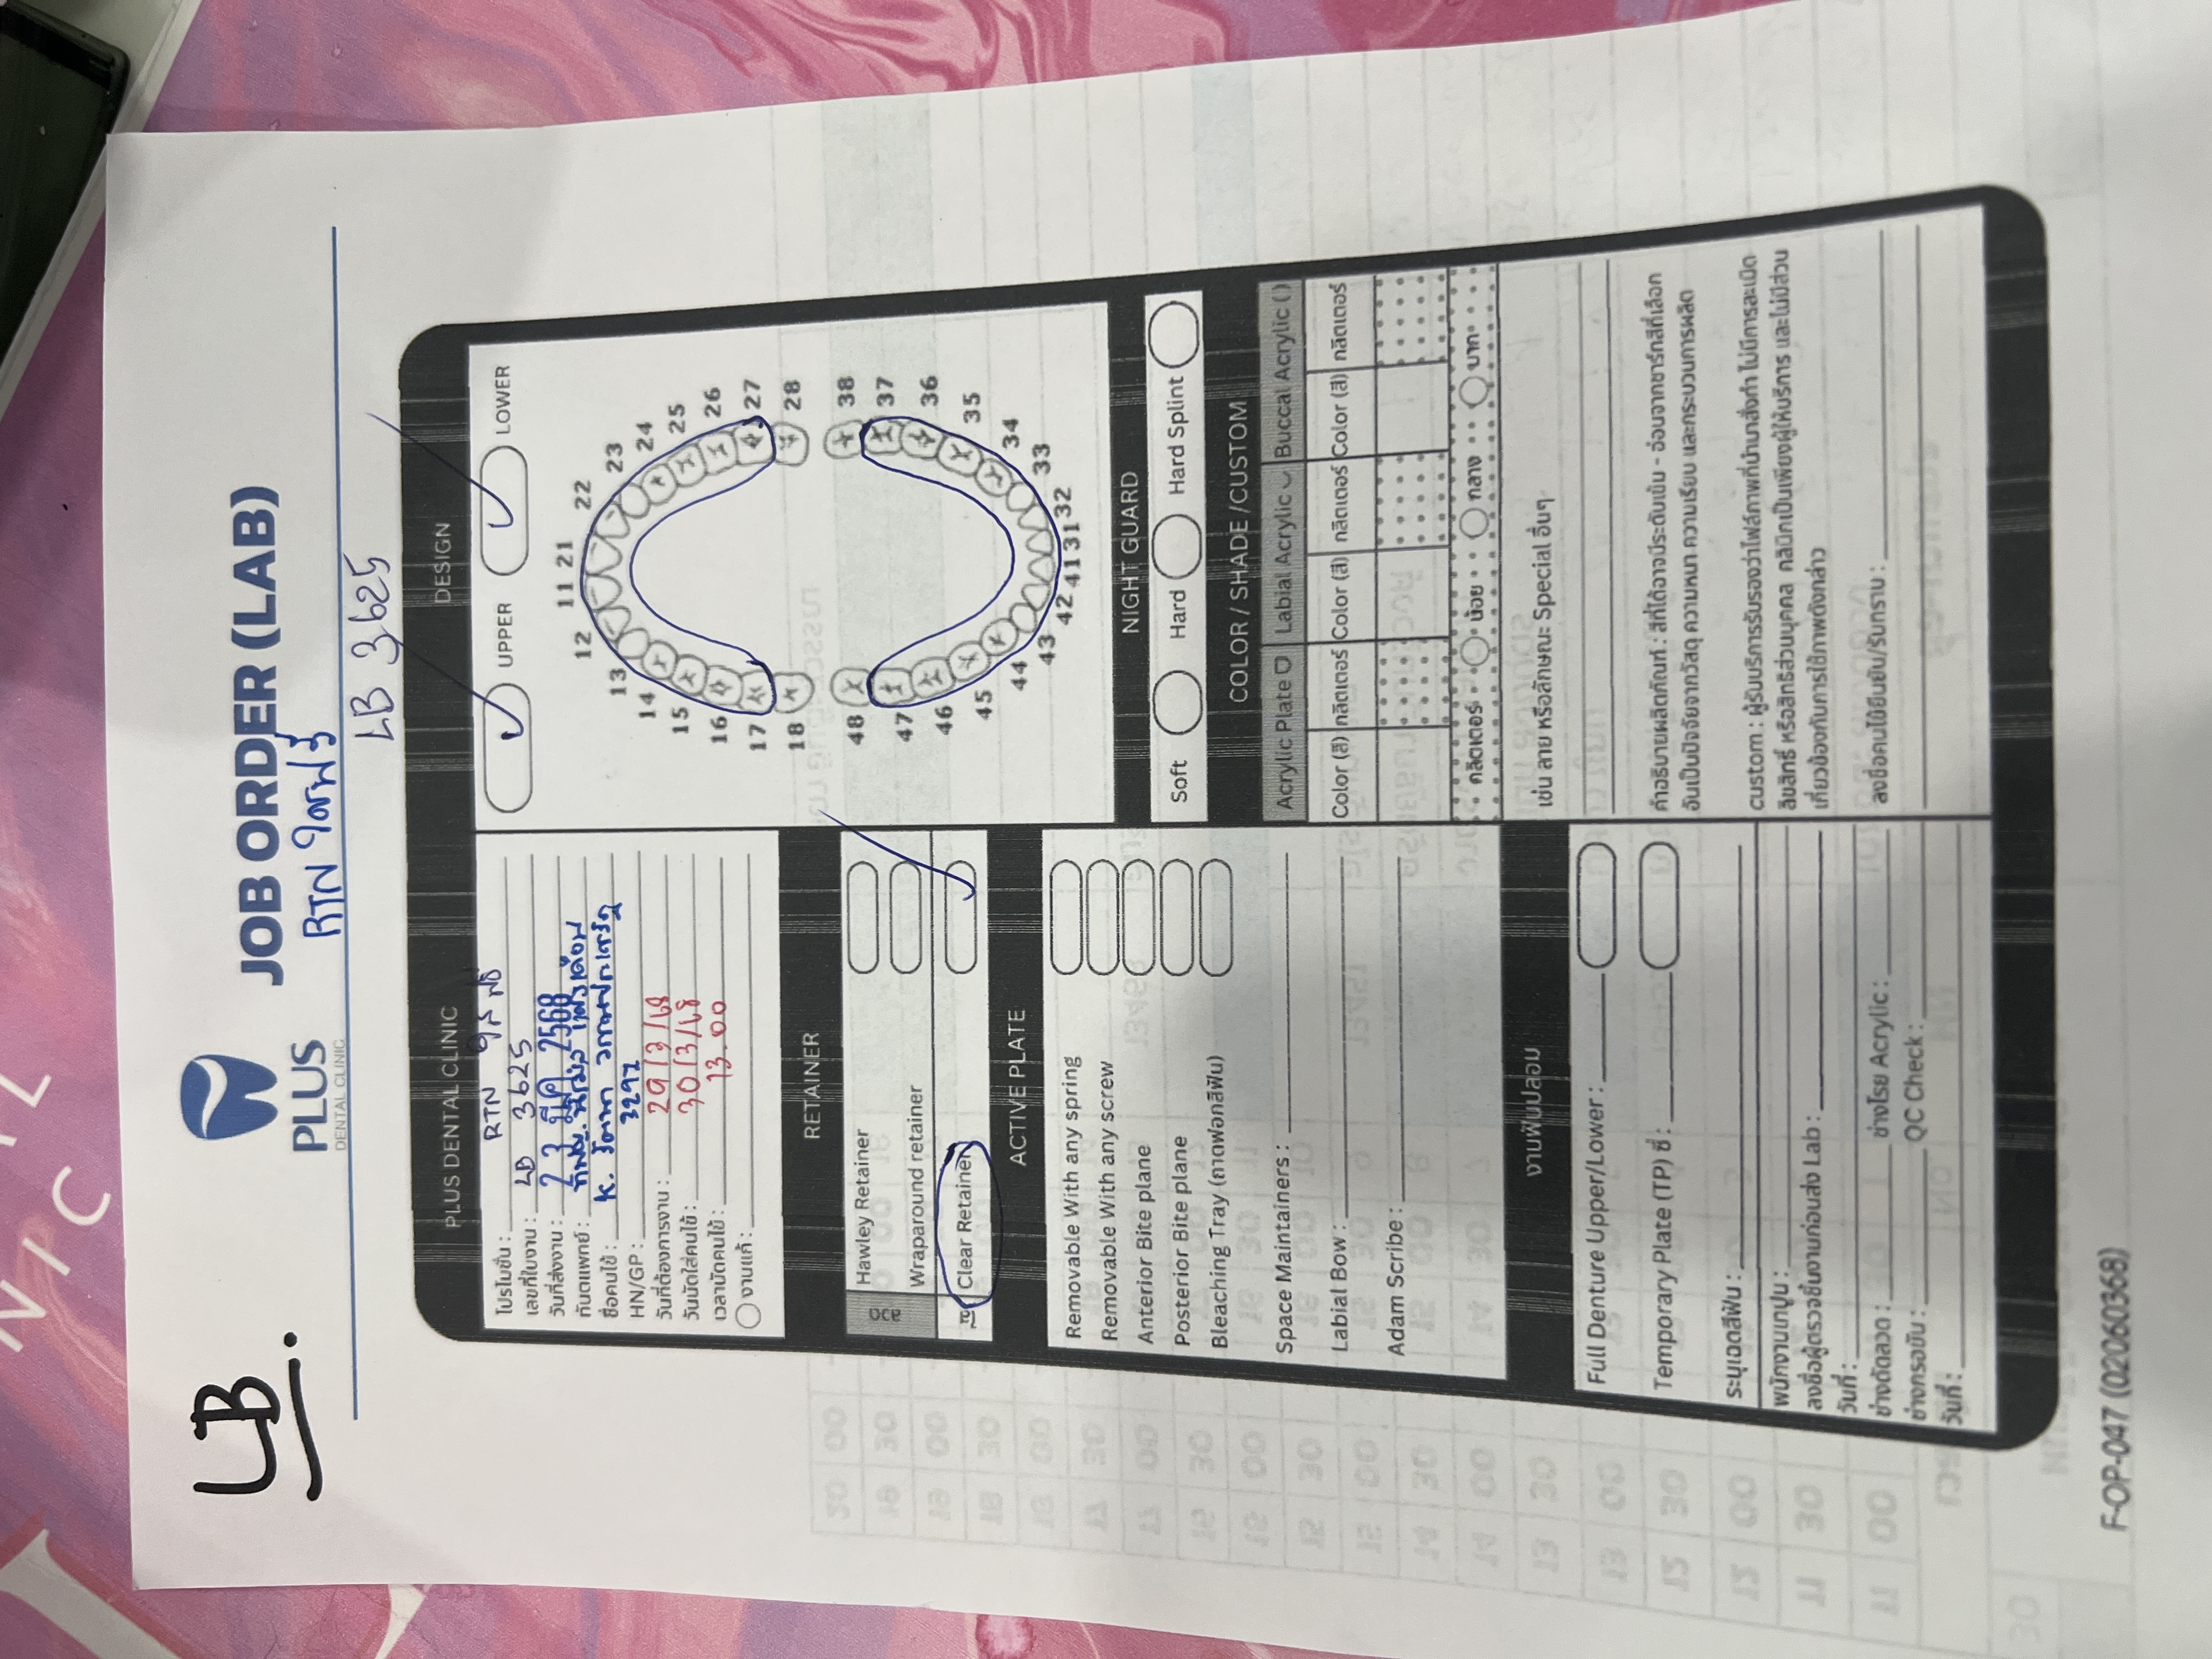 LB.
PLUS
DENTAL CLINIC
JOB ORDER (LAB)
RTN ใสฟรี
LB 3625
PLUS DENTAL CLINIC
โปรโมชั่น : RTN ใส ฟรี
เลขที่ใบงาน : LB 3625
วันที่ส่งงาน : 23 มี.ค. 2568
ทันตแพทย์ :
ชื่อคนไข้ : K.
HN/GP : 3297
วันที่ต้องการงาน : 29/3/68
วันนัดใส่คนไข้ : 30/3/68
เวลานัดคนไข้ : 13.00
งานแก้ :
RETAINER
ลวด
Hawley Retainer
Wraparound retainer
ใส
Clear Retainer
ACTIVE PLATE
Removable With any spring
Removable With any screw
Anterior Bite plane
Posterior Bite plane
Bleaching Tray (ถาดฟอกสีฟัน)
Space Maintainers :
Labial Bow :
Adam Scribe :
งานฟันปลอม
Full Denture Upper/Lower :
Temporary Plate (TP) ซี่ :
ระบุเฉดสีฟัน :
พนักงานเทปูน :
ลงชื่อผู้ตรวจชิ้นงานก่อนส่ง Lab :
วันที่ :
ช่างดัดลวด : ช่างโรย Acrylic :
ช่างกรอขัน : QC Check :
วันที่ :
DESIGN
UPPER LOWER
11 21
12 22
13 23
14 24
15 25
16 26
17 27
18 28
48 38
47 37
46 36
45 35
44 34
43 33
42 41 31 32
NIGHT GUARD
Soft Hard Hard Splint
COLOR / SHADE /CUSTOM
Acrylic Plate Labial Acrylic Buccal Acrylic ()
Color (สี) กลิตเตอร์ Color (สี) กลิตเตอร์ Color (สี) กลิตเตอร์
กลิตเตอร์ น้อย กลาง มาก
เช่น ลาย หรือลักษณะ Special อื่นๆ
คำอธิบายผลิตภัณฑ์ : สีที่ได้อาจมีระดับเข้ม - อ่อนจากชาร์ทสีที่เลือก
อันเป็นปัจจัยจากวัสดุ ความหนา ความเรียบ และกระบวนการผลิต
custom : ผู้รับบริการรับรองว่าไฟล์ภาพที่นำมาสั่งทำ ไม่มีการละเมิด
ลิขสิทธิ์ หรือสิทธิส่วนบุคคล คลินิกเป็นเพียงผู้ให้บริการ และไม่มีส่วน
เกี่ยวข้องกับการใช้ภาพดังกล่าว
ลงชื่อคนไข้ยืนยัน/รับทราบ :
F-OP-047 (02060368)